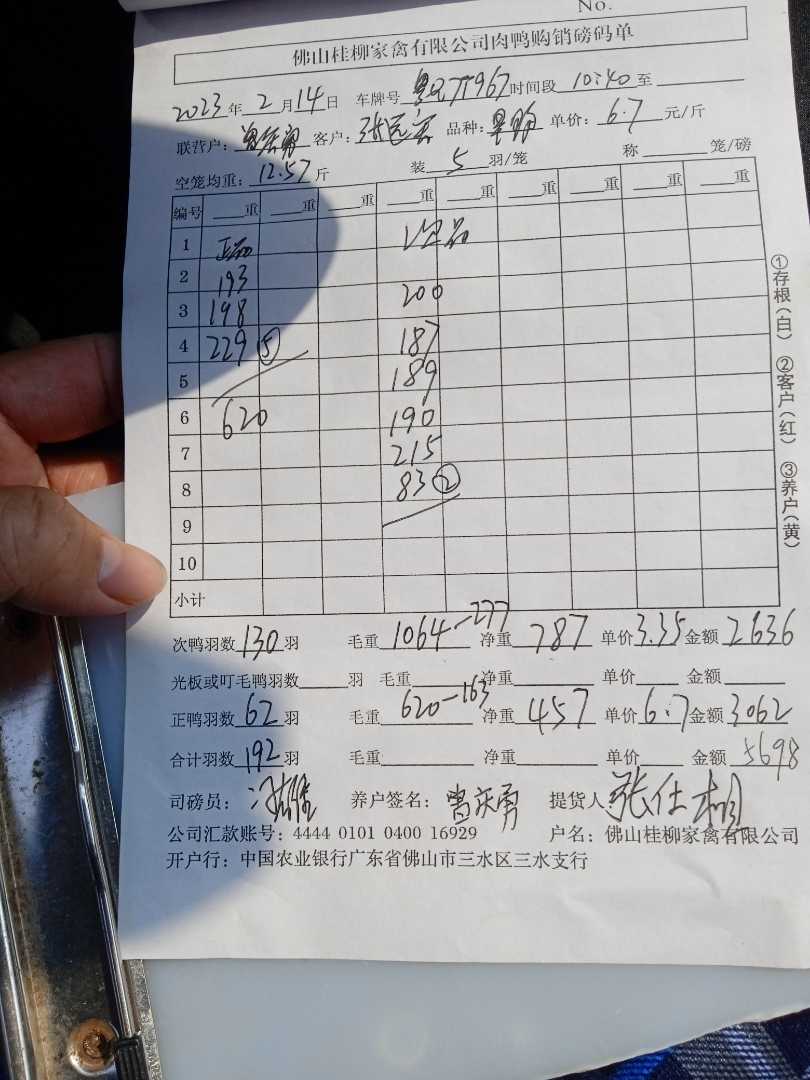 No.
佛山桂柳家禽有限公司肉鸭购销磅码单
2023年2月14日 车牌号 时间段 10:40 至
联营户: 客户: 品种: 单价: 6.7 元/斤
空笼均重: 12.57 斤 装 5 羽/笼 称 笼/磅
编号 重 重 重 重 重 重 重 重 重
1 正品 次品
2 193
3 198 200
4 229 ⑤ 187
5 189
6 620 190
7 215
8 83 ②
9
10
小计
次鸭羽数 130 羽 毛重 1064-277 净重 787 单价 3.35 金额 2636
光板或叮毛鸭羽数 羽 毛重 净重 单价 金额
正鸭羽数 62 羽 毛重 620-163 净重 457 单价 6.7 金额 3062
合计羽数 192 羽 毛重 净重 单价 金额 5698
司磅员: 养户签名: 曾庆勇 提货人 张仕
公司汇款账号: 4444 0101 0400 16929 户名: 佛山桂柳家禽有限公司
开户行: 中国农业银行广东省佛山市三水区三水支行
①存根(白) ②客户(红) ③养户(黄)